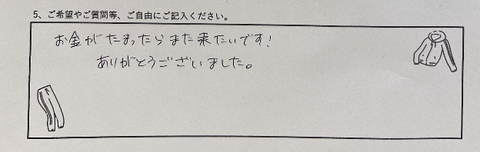 5、ご希望やご質問等、ご自由にご記入ください。
お金がたまったらまた来たいです!
ありがとうございました。